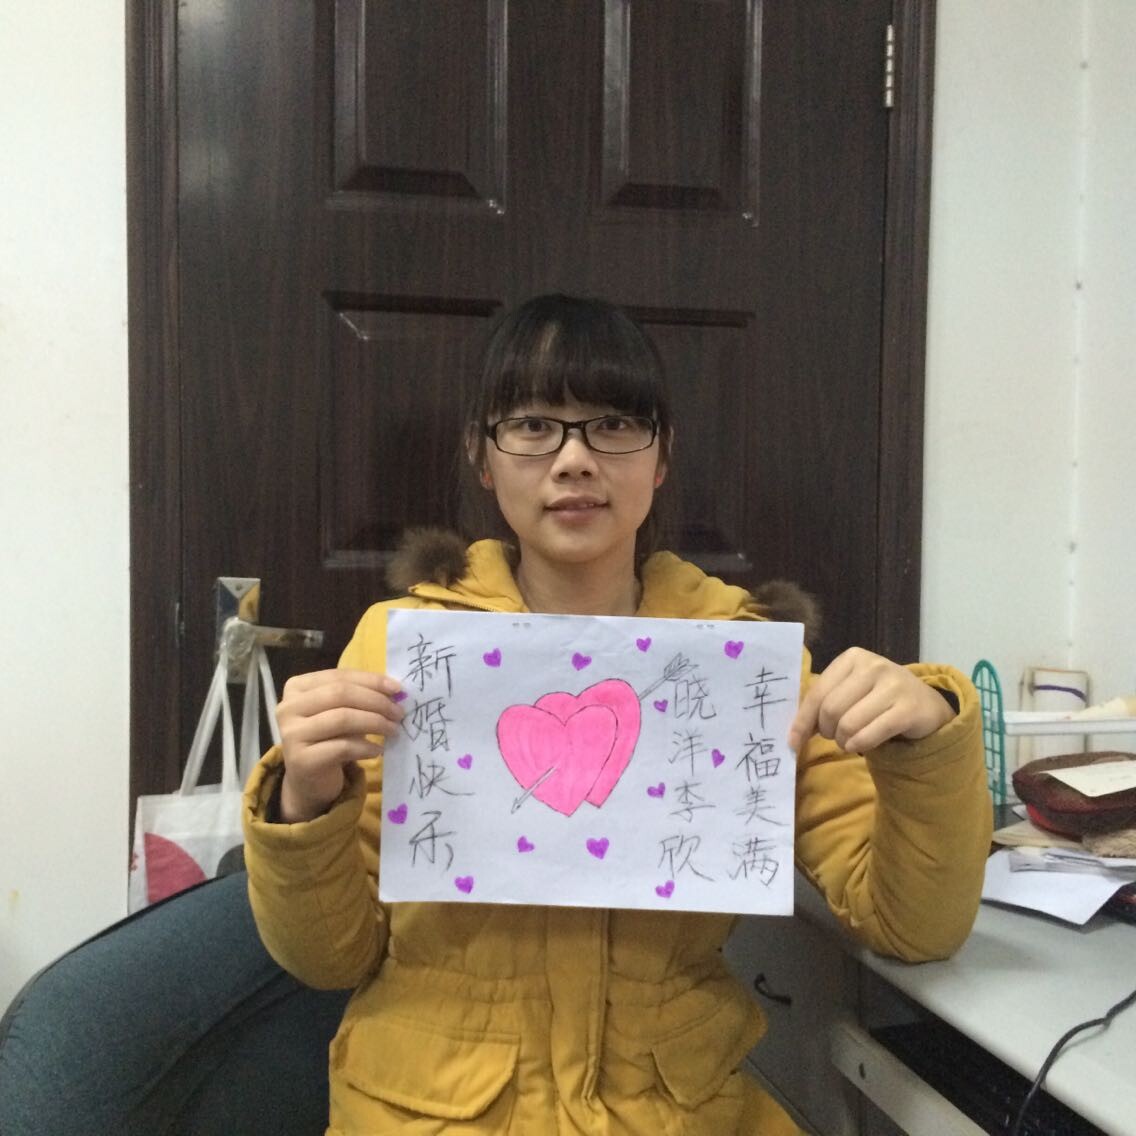 幸福美满
晓洋李欣
新婚快乐